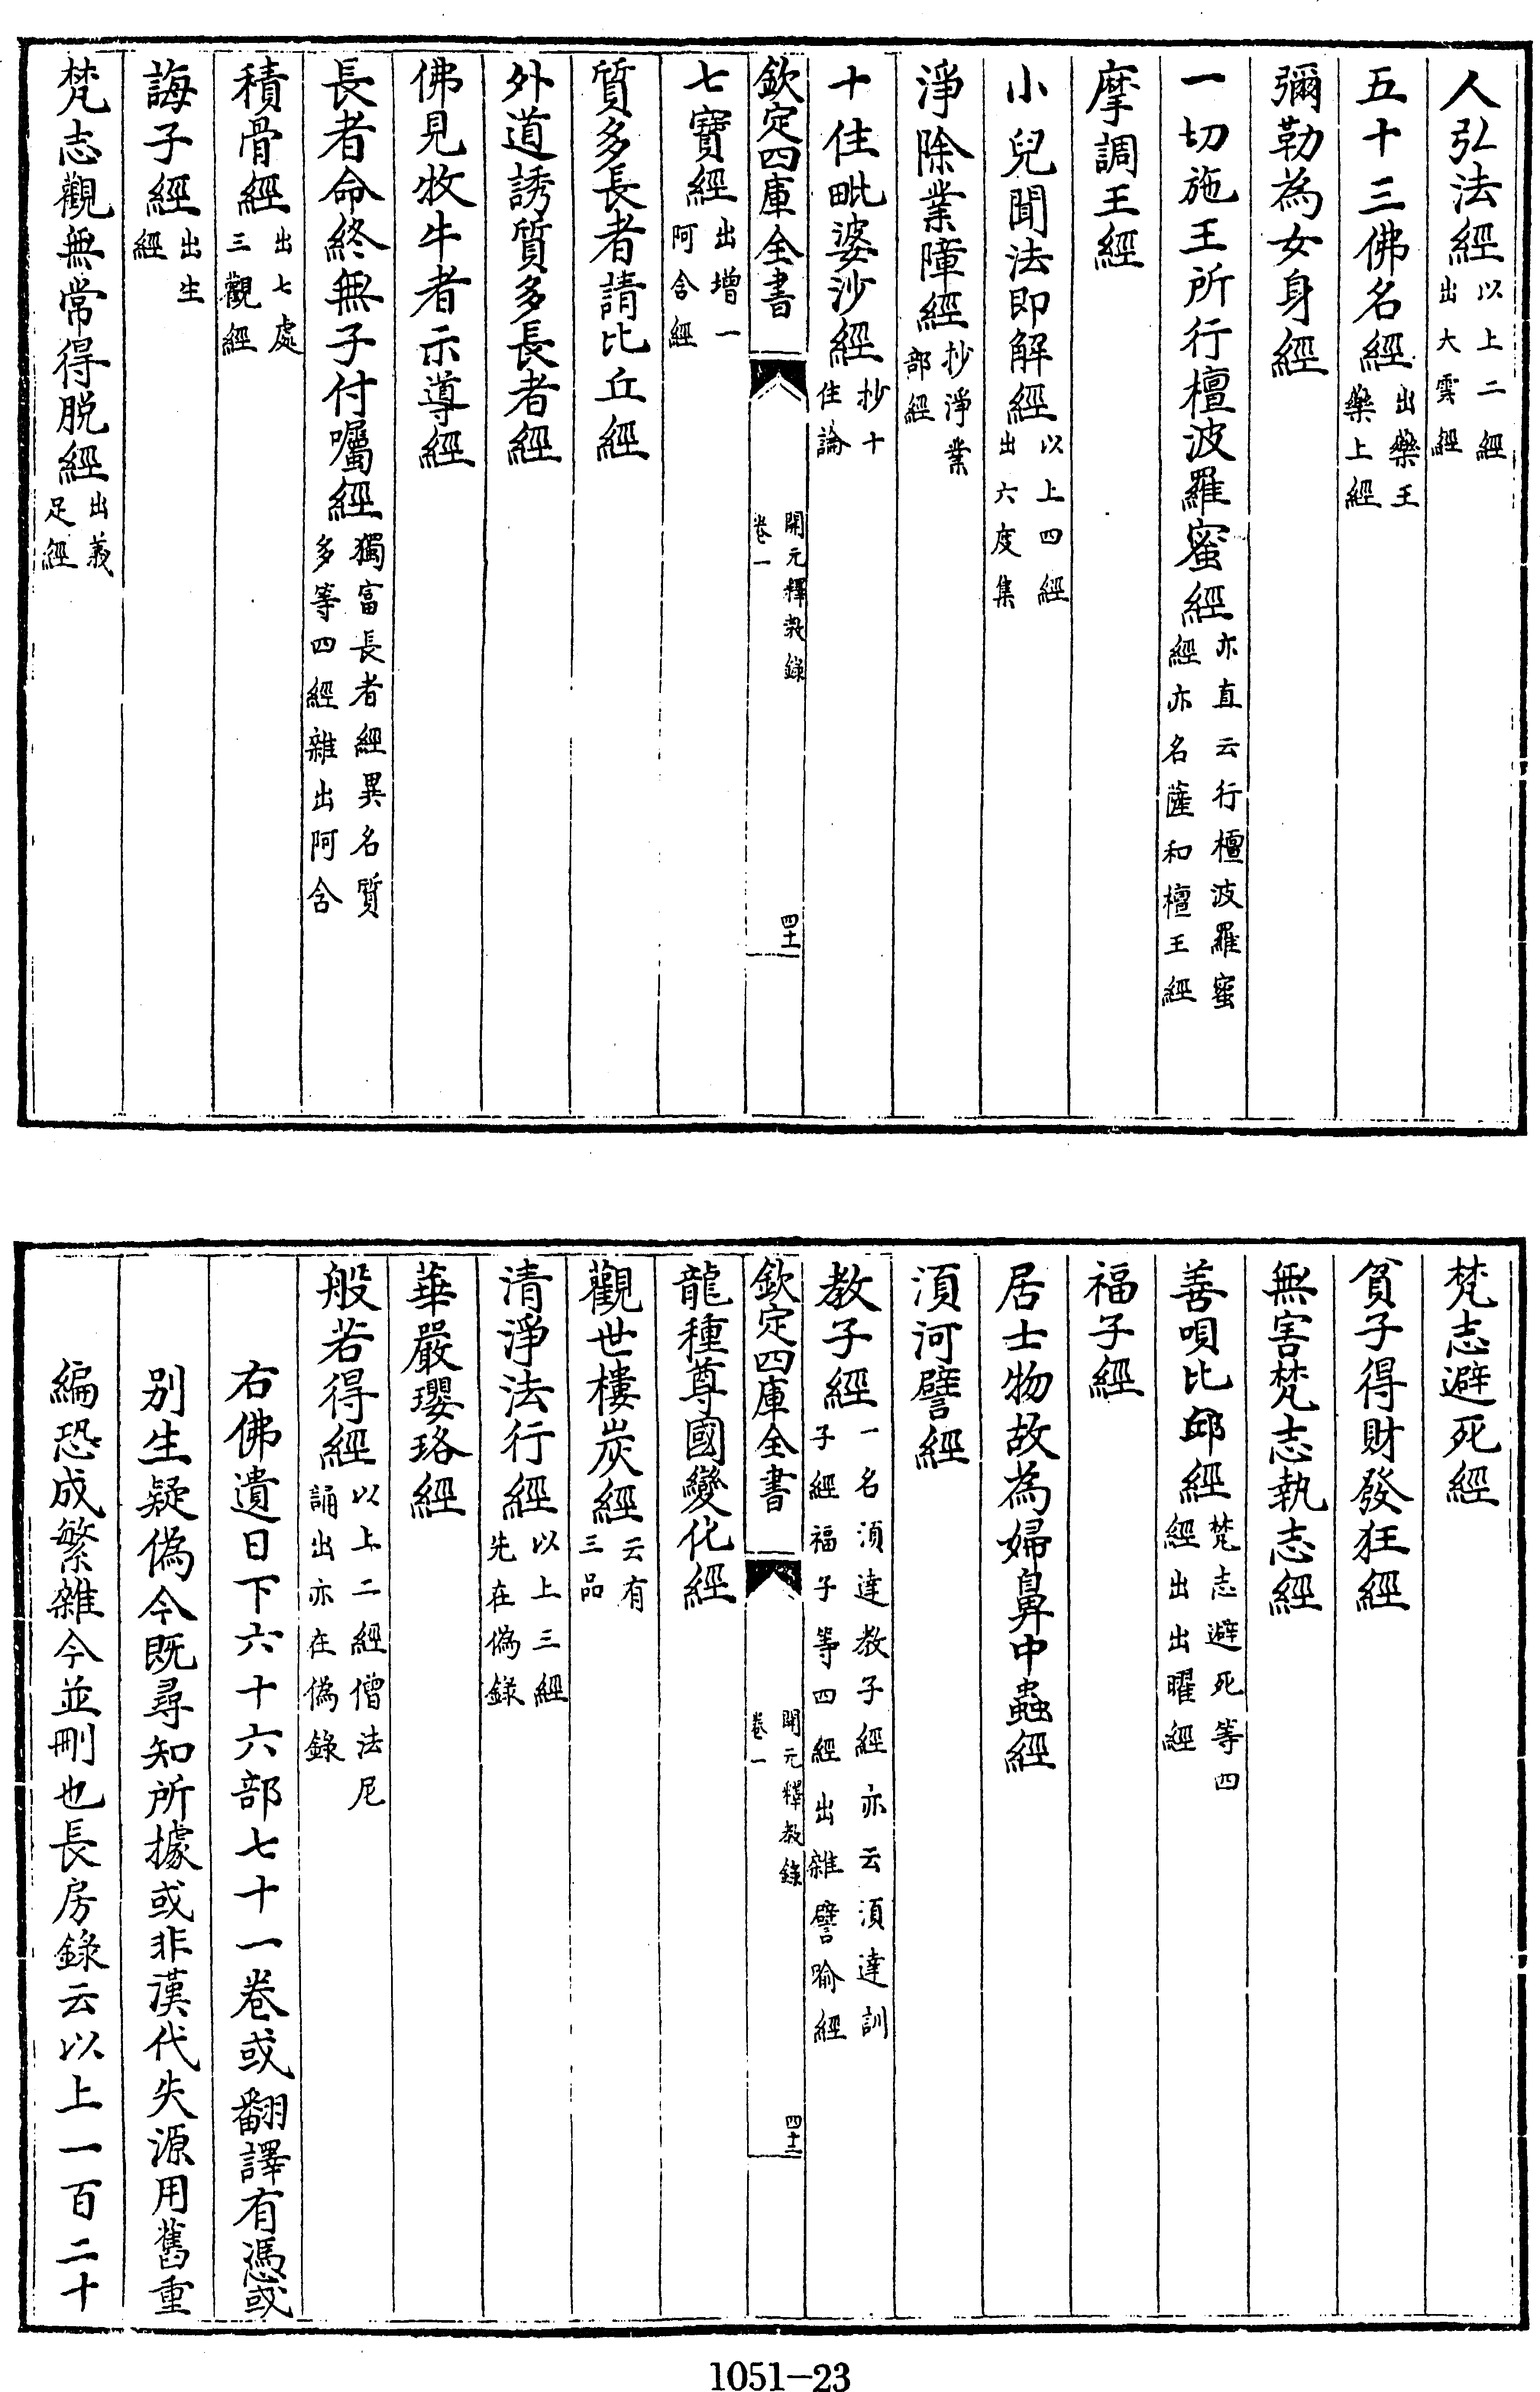 人弘法經以上二經出大雲經
五十三佛名經出藥王藥上經
彌勒為女身經
一切施王所行檀波羅蜜經亦直云行檀波羅蜜經亦名薩和檀王經
摩調王經
小兒聞法即解經以上四經出六度集
淨除業障經抄淨業部經
十住毗婆沙經抄十住論
欽定四庫全書 開元釋教錄卷一 四十一
七寶經出增一阿含經
質多長者請比丘經
外道誘質多長者經
佛見牧牛者示導經
長者命終無子付囑經獨富長者經異名質多等四經雜出阿含
積骨經出七處三觀經
誨子經出生經
梵志觀無常得脫經出義足經
梵志避死經
貧子得財發狂經
無害梵志執志經
善唄比邱經梵志避死等四經出出曜經
福子經
居士物故為婦鼻中蟲經
須河譬經
教子經一名須達教子經亦云須達訓子經福子等四經出雜譬喻經
欽定四庫全書 開元釋教錄卷一 四十二
龍種尊國變化經
觀世樓炭經云有三品
清淨法行經以上三經先在偽錄
華嚴瓔珞經
般若得經以上二經僧法尼誦出亦在偽錄
右佛遺日下六十六部七十一卷或翻譯有憑或
別生疑偽今既尋知所據或非漢代失源用舊重
編恐成繁雜今並刪也長房錄云以上一百二十
1051-23